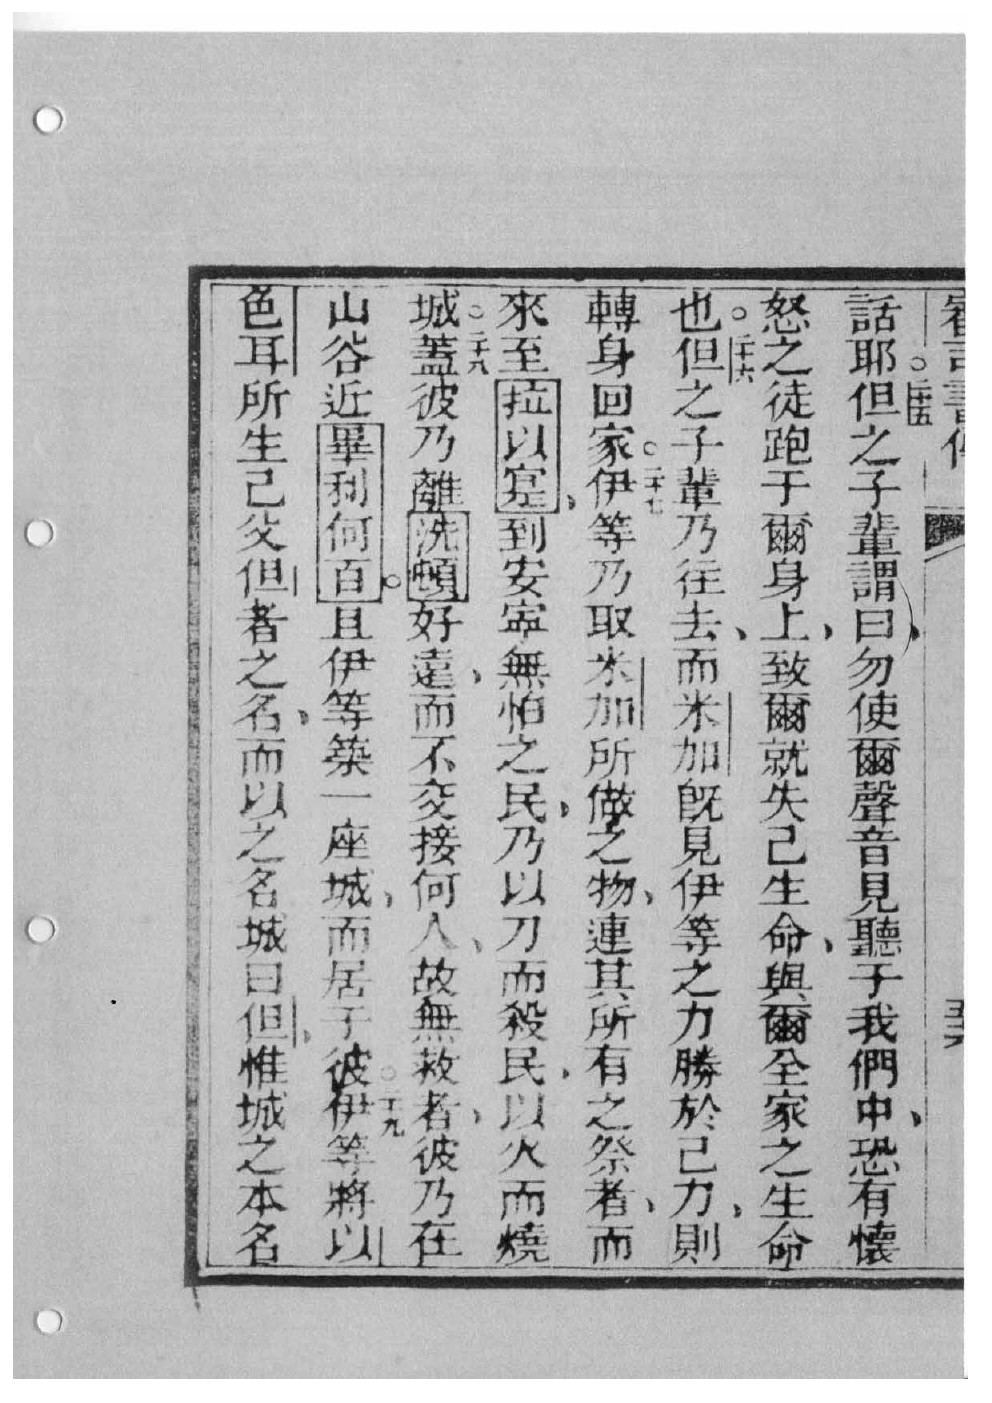 審司書傳
話○二十五耶但之子輩謂曰勿使爾聲音見聽于我們中、恐有懷
怒之徒跑于爾身上、致爾就失己生命、與爾全家之生命
也○二十六但之子輩乃往去、而米加既見伊等之力勝於己力、則
轉身回家○二十七伊等乃取米加所做之物、連其所有之祭者、而
來至拉以寔、到安寧無怕之民、乃以刀而殺民、以火而燒
城○二十八蓋彼乃離洗頓好遠、而不交接何人、故無救者、彼乃在
山谷近畢利何百。且伊等築一座城、而居于彼○二十九伊等將以
色耳所生己父但者之名、而以之名城曰但、惟城之本名